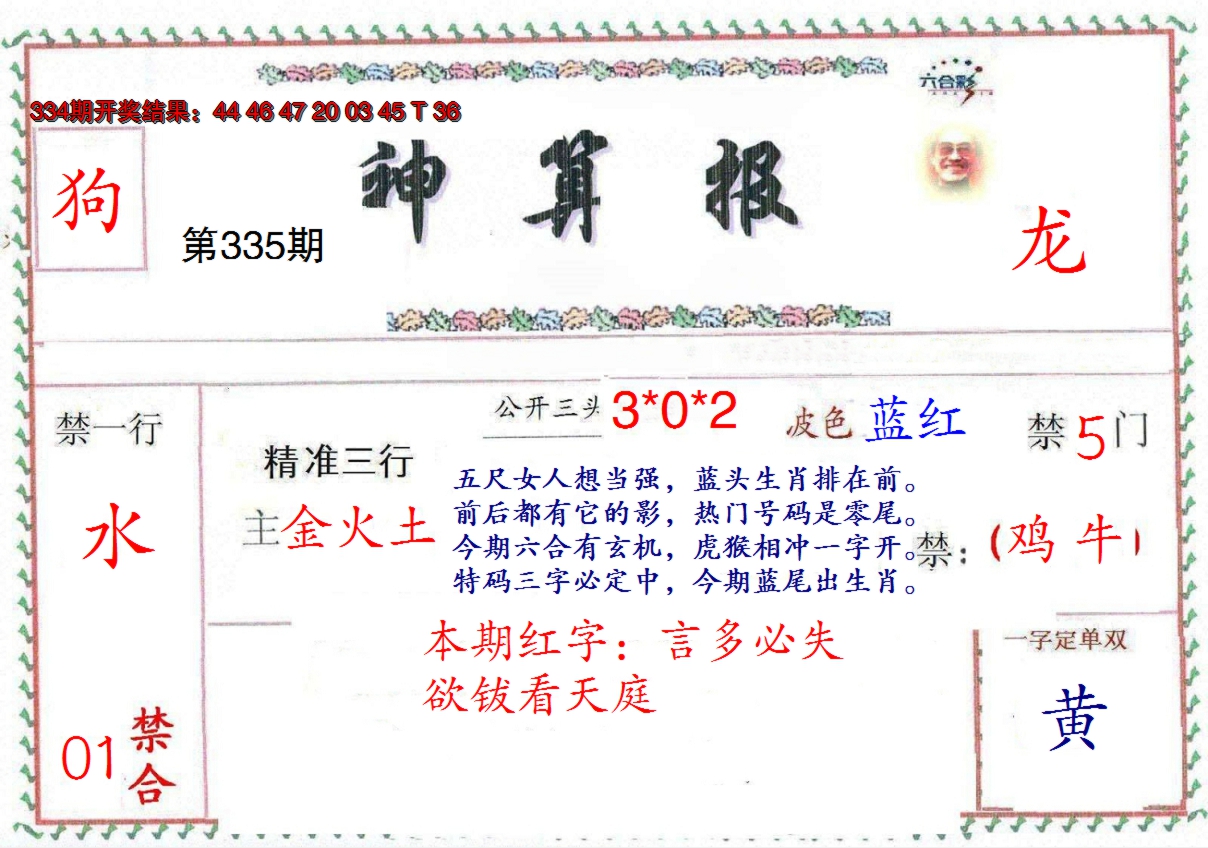 六合彩
334期开奖结果：44 46 47 20 03 45 T 36
狗
神算报
第335期
龙
禁一行
水
01
禁合
精准三行
主金火土
公开三头 3*0*2
波色 蓝红
禁5门
五尺女人想当强，蓝头生肖排在前。
前后都有它的影，热门号码是零尾。
今期六合有玄机，虎猴相冲一字开。
特码三字必定中，今期蓝尾出生肖。
禁：（鸡 牛）
本期红字：言多必失
欲钹看天庭
一字定单双
黄